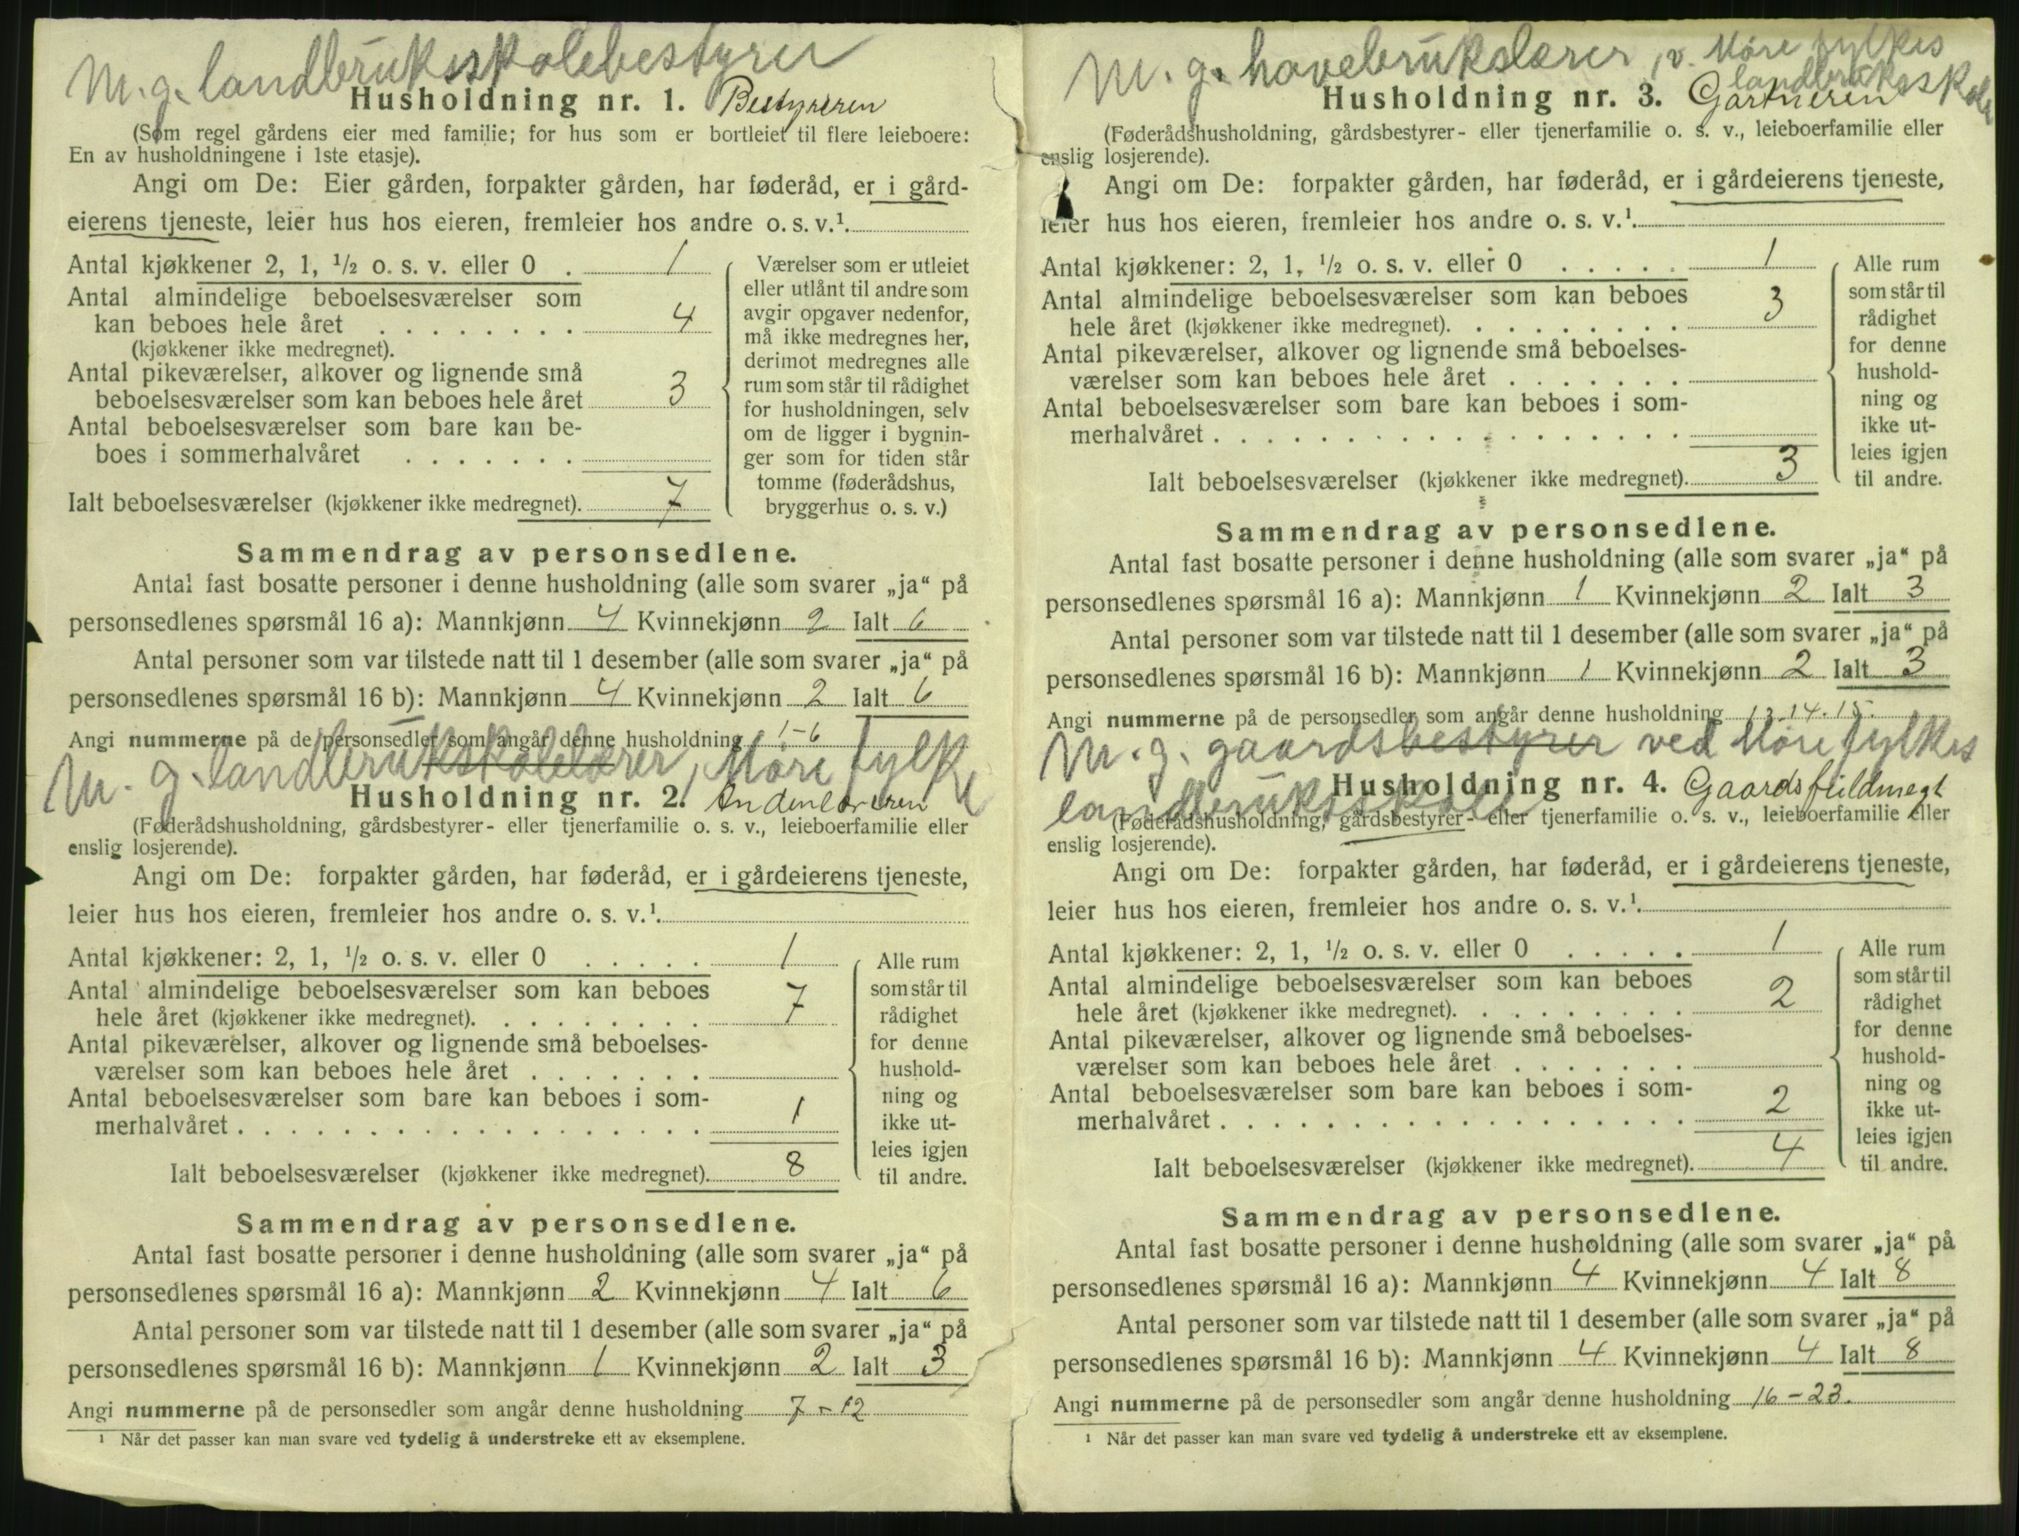 M. g. landbruksskolebestyrer
Husholdning nr. 1. Bestyreren
(Som regel gårdens eier med familie; for hus som er bortleiet til flere leieboere:
En av husholdningene i 1ste etasje).
Angi om De: Eier gården, forpakter gården, har føderåd, er i gård-
eierens tjeneste, leier hus hos eieren, fremleier hos andre o. s. v.¹.
Antal kjøkkener 2, 1, ½ o. s. v. eller 0 . 1
Antal almindelige beboelsesværelser som
kan beboes hele året . . . . . . . . 4
(kjøkkener ikke medregnet).
Antal pikeværelser, alkover og lignende små
beboelsesværelser som kan beboes hele året 3
Antal beboelsesværelser som bare kan be-
boes i sommerhalvåret . . . . . . .
Ialt beboelsesværelser (kjøkkener ikke medregnet). 7
Værelser som er utleiet
eller utlånt til andre som
avgir opgaver nedenfor,
må ikke medregnes her,
derimot medregnes alle
rum som står til rådighet
for husholdningen, selv
om de ligger i bygnin-
ger som for tiden står
tomme (føderådshus,
bryggerhus o. s. v.)
Sammendrag av personsedlene.
Antal fast bosatte personer i denne husholdning (alle som svarer „ja“ på
personsedlenes spørsmål 16 a): Mannkjønn 4 Kvinnekjønn 2 Ialt 6
Antal personer som var tilstede natt til 1 desember (alle som svarer „ja“ på
personsedlenes spørsmål 16 b): Mannkjønn 4 Kvinnekjønn 2 Ialt 6
Angi nummerne på de personsedler som angår denne husholdning 1-6
M. g. landbruksskolelærer, Møre fylke
Husholdning nr. 2. Andenlæreren
(Føderådshusholdning, gårdsbestyrer- eller tjenerfamilie o. s. v., leieboerfamilie eller
enslig losjerende).
Angi om De: forpakter gården, har føderåd, er i gårdeierens tjeneste,
leier hus hos eieren, fremleier hos andre o. s. v.¹.
Antal kjøkkener: 2, 1, ½ o. s. v. eller 0 . . . . . 1
Antal almindelige beboelsesværelser som kan beboes
hele året (kjøkkener ikke medregnet). . . . . . . . . 7
Antal pikeværelser, alkover og lignende små beboelses-
værelser som kan beboes hele året . . . . . . .
Antal beboelsesværelser som bare kan beboes i som-
merhalvåret . . . . . . . . . . . . . . . . . . 1
Ialt beboelsesværelser (kjøkkener ikke medregnet). 8
Alle rum
som står til
rådighet
for denne
hushold-
ning og
ikke ut-
leies igjen
til andre.
Sammendrag av personsedlene.
Antal fast bosatte personer i denne husholdning (alle som svarer „ja“ på
personsedlenes spørsmål 16 a): Mannkjønn 2 Kvinnekjønn 4 Ialt 6
Antal personer som var tilstede natt til 1 desember (alle som svarer „ja“ på
personsedlenes spørsmål 16 b): Mannkjønn 1 Kvinnekjønn 2 Ialt 3
Angi nummerne på de personsedler som angår denne husholdning 7-12
¹ Når det passer kan man svare ved tydelig å understreke ett av eksemplene.
M. g. havebrukslærer, v. Møre fylkes
landbruksskole
Husholdning nr. 3. Gartneren
(Føderådshusholdning, gårdsbestyrer- eller tjenerfamilie o. s. v., leieboerfamilie eller
enslig losjerende).
Angi om De: forpakter gården, har føderåd, er i gårdeierens tjeneste,
leier hus hos eieren, fremleier hos andre o. s. v.¹.
Antal kjøkkener: 2, 1, ½ o. s. v. eller 0 . . . . . 1
Antal almindelige beboelsesværelser som kan beboes
hele året (kjøkkener ikke medregnet). . . . . . . . . 3
Antal pikeværelser, alkover og lignende små beboelses-
værelser som kan beboes hele året . . . . . . .
Antal beboelsesværelser som bare kan beboes i som-
merhalvåret . . . . . . . . . . . . . . . . . .
Ialt beboelsesværelser (kjøkkener ikke medregnet). 3
Alle rum
som står til
rådighet
for denne
hushold-
ning og
ikke ut-
leies igjen
til andre.
Sammendrag av personsedlene.
Antal fast bosatte personer i denne husholdning (alle som svarer „ja“ på
personsedlenes spørsmål 16 a): Mannkjønn 1 Kvinnekjønn 2 Ialt 3
Antal personer som var tilstede natt til 1 desember (alle som svarer „ja“ på
personsedlenes spørsmål 16 b): Mannkjønn 1 Kvinnekjønn 2 Ialt 3
Angi nummerne på de personsedler som angår denne husholdning 13.14.15.
M. g. gaardsbestyrer ved Møre fylkes
landbruksskole
Husholdning nr. 4. Gaardsfuldmegt
(Føderådshusholdning, gårdsbestyrer- eller tjenerfamilie o. s. v., leieboerfamilie eller
enslig losjerende).
Angi om De: forpakter gården, har føderåd, er i gårdeierens tjeneste,
leier hus hos eieren, fremleier hos andre o. s. v.¹.
Antal kjøkkener: 2, 1, ½ o. s. v. eller 0 . . . . . 1
Antal almindelige beboelsesværelser som kan beboes
hele året (kjøkkener ikke medregnet). . . . . . . . . 2
Antal pikeværelser, alkover og lignende små beboelses-
værelser som kan beboes hele året . . . . . . .
Antal beboelsesværelser som bare kan beboes i som-
merhalvåret . . . . . . . . . . . . . . . . . . 2
Ialt beboelsesværelser (kjøkkener ikke medregnet). 4
Alle rum
som står til
rådighet
for denne
hushold-
ning og
ikke ut-
leies igjen
til andre.
Sammendrag av personsedlene.
Antal fast bosatte personer i denne husholdning (alle som svarer „ja“ på
personsedlenes spørsmål 16 a): Mannkjønn 4 Kvinnekjønn 4 Ialt 8
Antal personer som var tilstede natt til 1 desember (alle som svarer „ja“ på
personsedlenes spørsmål 16 b): Mannkjønn 4 Kvinnekjønn 4 Ialt 8
Angi nummerne på de personsedler som angår denne husholdning 16-23.
¹ Når det passer kan man svare ved tydelig å understreke ett av eksemplene.